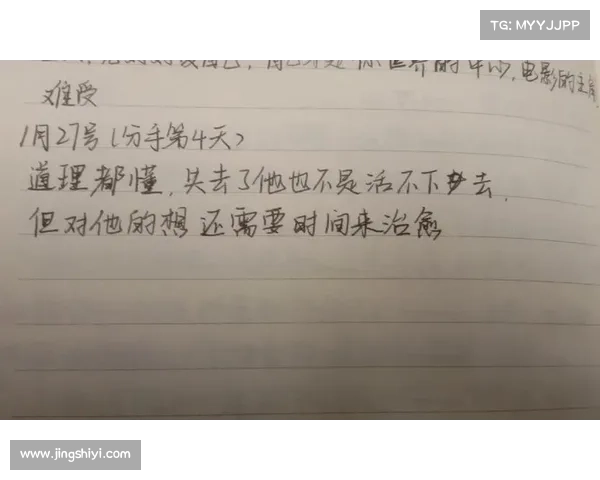 TG: MYYJJPP
世界的中心,电影的主角
难受
1月27号(分手第4天)
道理都懂,失去了他也不是活不下去,
但对他的想还需要时间来治愈
www.jingshiyi.com